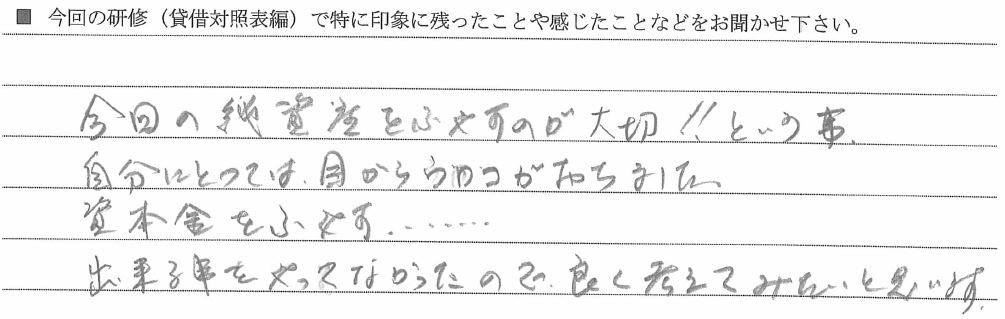 ■ 今回の研修（貸借対照表編）で特に印象に残ったことや感じたことなどをお聞かせ下さい。
今回の純資産をふやすのが大切!!という事、
自分にとっては、目からウロコがおちました。
資本金をふやす........
出来る事をやってなかったので、良く考えてみたいと思います。